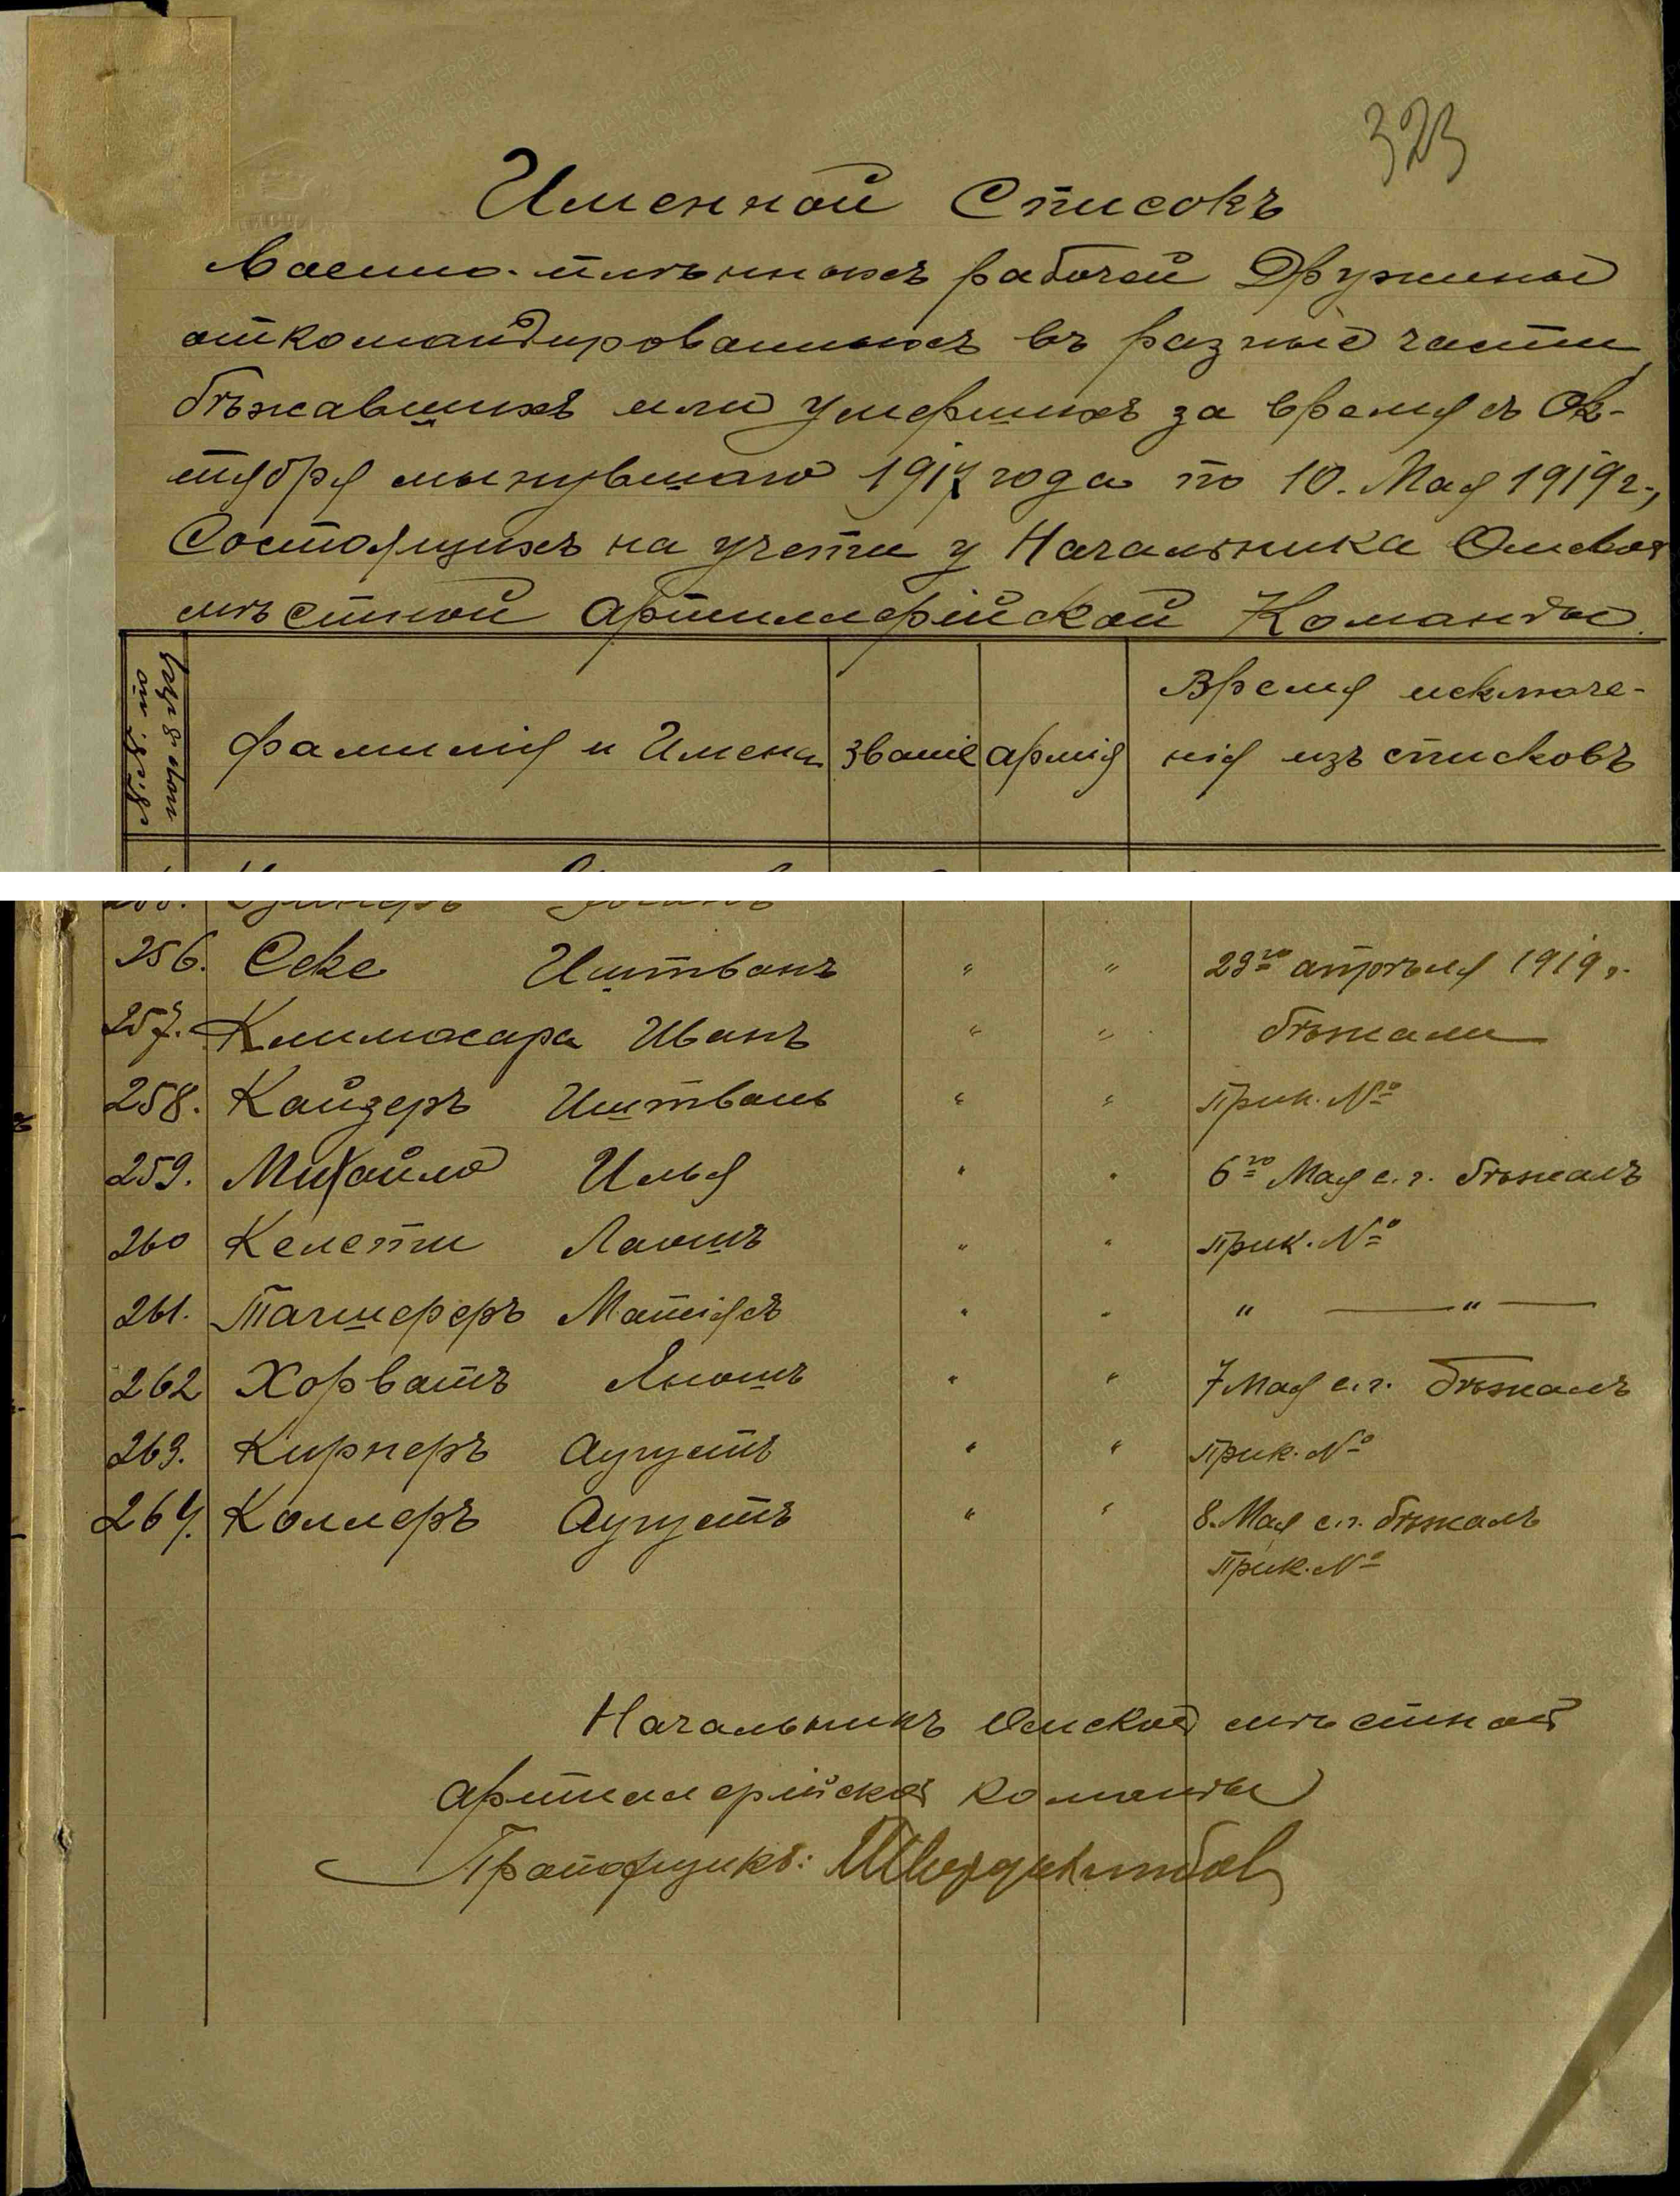 323
Именной Списокъ
Военно-плѣнныхъ рабочей Дружины
откомандированныхъ въ разные части
бѣжавшихъ или умершихъ за время съ Ок-
тября минувшаго 1917 года по 10. Мая 1919 г.,
Состоящихъ на учети у Начальника Омской
мѣстной Артиллерійской Команды.
Фамилія и Имена Званіе Армія Время исключе-
нія изъ списковъ
256. Секе Иштванъ " " 23го апрѣля 1919 г.
257. Климокара Иванъ " " бѣжали
258. Кайзеръ Иштванъ " " Прик. №
259. Михайло Илья " " 6го Мая с. г. бѣжалъ
260 Келети Лаошъ " " Прик. №
261. Тачшереръ Матіясъ " " " — " —
262 Хорватъ Яношъ " " 7 Мая с. г. бѣжалъ
263. Кирнеръ Аугустъ " " Прик. №
264. Коллеръ Аугустъ " " 8. Мая с. г. бѣжалъ
Прик. №
Начальникъ Омской мѣстной
Артиллерійской команды
Прапорщикъ: